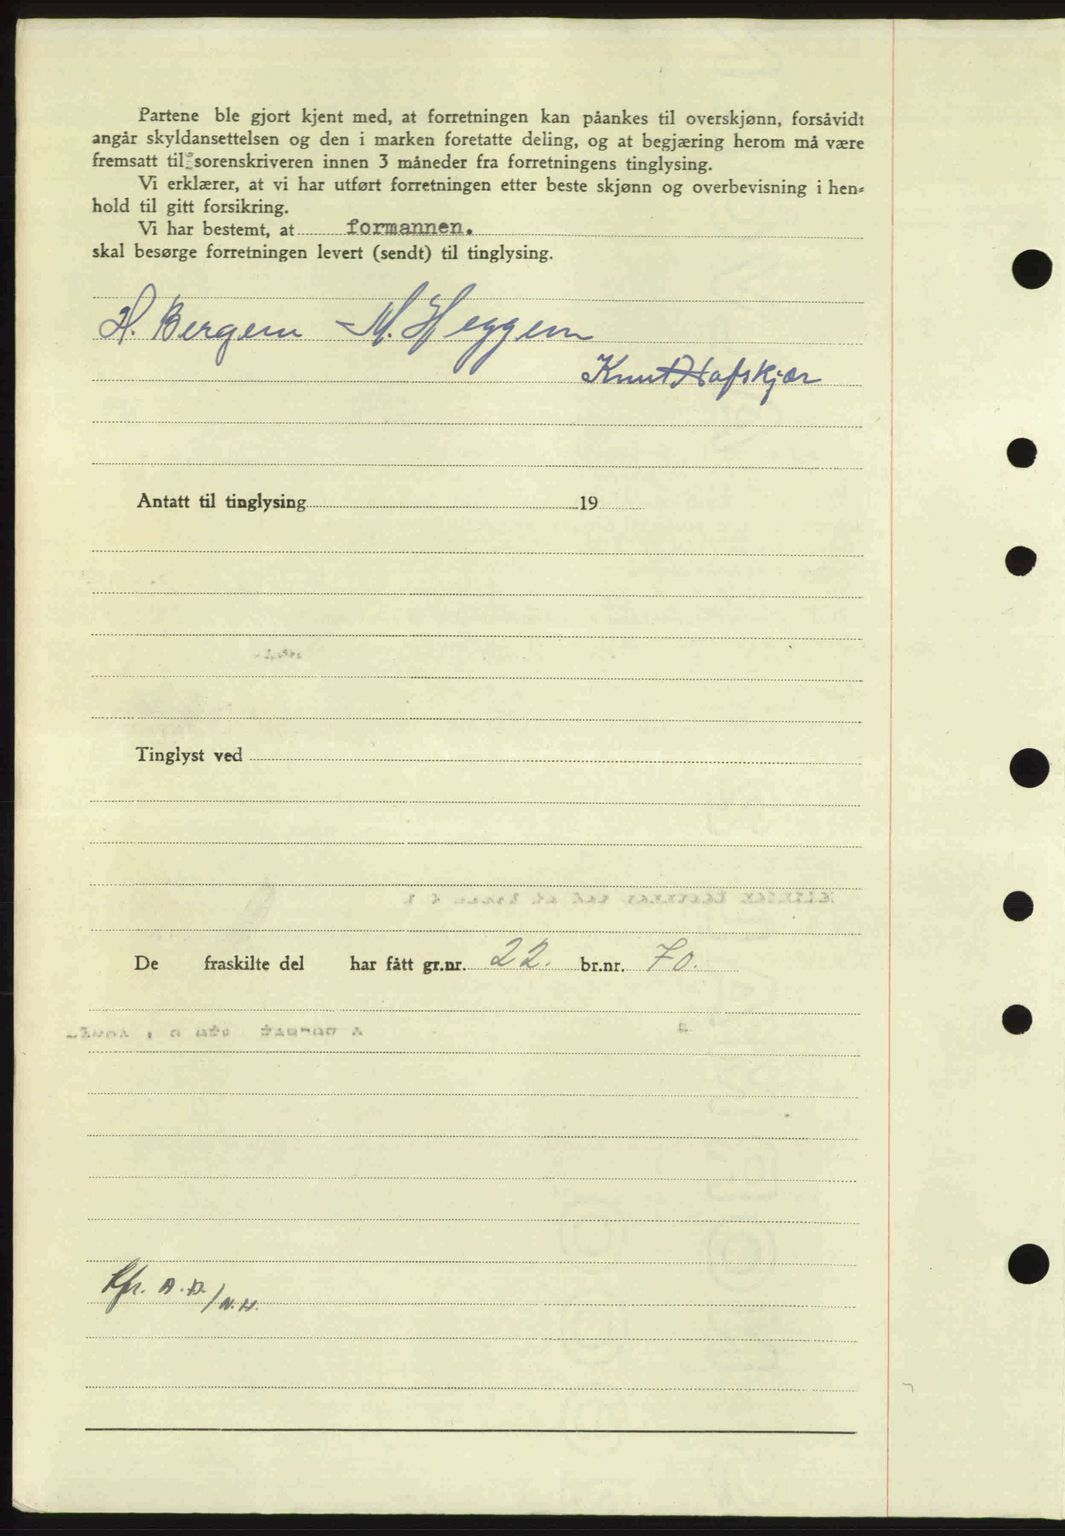 Partene ble gjort kjent med, at forretningen kan påankes til overskjønn, forsåvidt
angår skyldansettelsen og den i marken foretatte deling, og at begjæring herom må være
fremsatt til sorenskriveren innen 3 måneder fra forretningens tinglysing.
Vi erklærer, at vi har utført forretningen etter beste skjønn og overbevisning i hen-
hold til gitt forsikring.
Vi har bestemt, at formannen.
skal besørge forretningen levert (sendt) til tinglysing.
H. Bergem M. Heggem
Knut Hafskjær
Antatt til tinglysing 19
Tinglyst ved
De fraskilte del har fått gr.nr. 22. br.nr. 70.
Kfr. A.D./N.H.